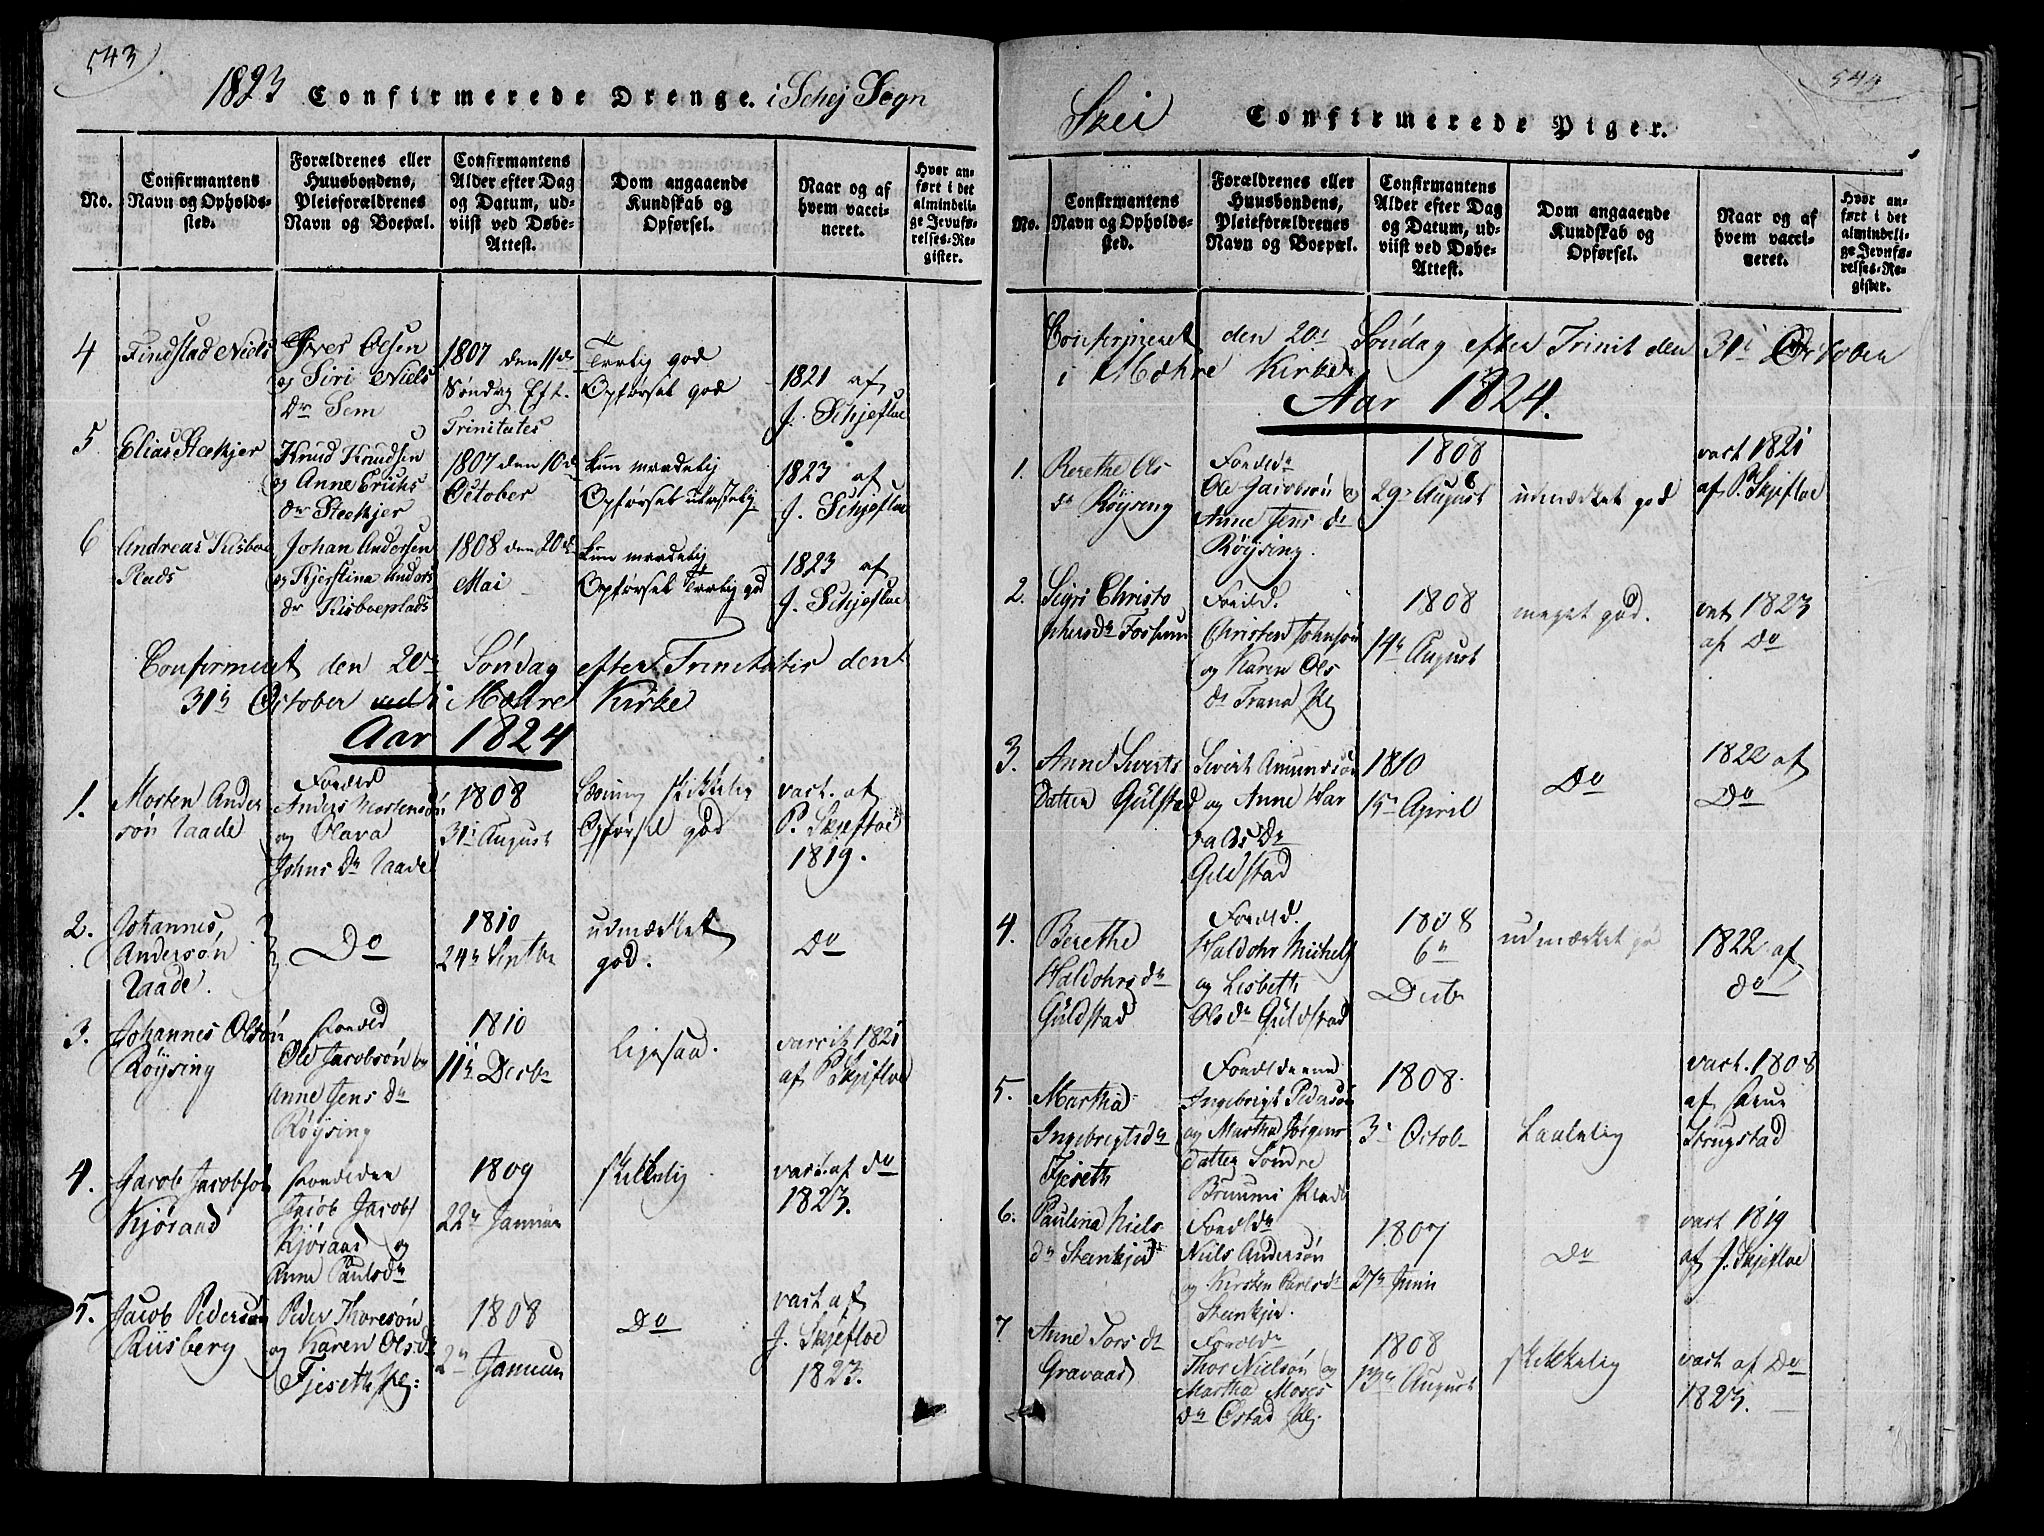 543
1823 Confirmerede Drenge. i Schej Sogn
No.
Confirmantens
Navn og Opholds-
sted.
Forældrenes eller
Huusbondens,
Pleieforældrenes
Navn og Boepæl.
Confirmantens
Alder efter Dag
og Datum, ud-
viist ved Døbe-
Attest.
Dom angaaende
Kundskab og
Opførsel.
Naar og af
hvem vacci-
neret.
Hvor an-
ført i det
almindeli-
ge Jevnfø-
relses-Re-
gister.
4
Findstad Niels
Iver Olsen
og Siri Niels
dr Sem
1807 den 11te
Søndag Eft.
Trinitates
Temlig god
Opførsel god
1821 af
J. Schjefloe
5
Elias Steekjer
Knud Knudsen
og Anne Erichs
dr Steekjer
1807 den 10de
October
kun maadelig
Opførsel ulastelig
1823 af
J. Schjefloe
6
Andreas Kisboe
Plads
Johan Andersen
og Kjerstina Anders
dr Kisboeplads
1808 den 20de
Mai
kun maadelig
Opførsel Temlig god
1823 af
J. Schjefloe
Confirmeret den 20de Søndag efter Trinitatis den
31te October i Mæhre Kirke
Aar 1824
1.
Morten Ander
søn Naade
Foræld
Anders Mortensøn
og Olava
Johns Dr Naade
1808
31te August
Læsning skikkelig
Opførsel god
vact. af
P. Skjefloe
1819.
2.
Johannes,
Andersøn
Naade.
Do
1810
24de Septbr
udmærket
god.
Do
3.
Johannes Olsøn
Røysing
Foræld
Ole Jacobsøn og
Anne Jens Dr
Røysing
1810
11te Decbr
ligesaa.
1821
af P. Skjefloe
4.
Jacob Jacobsøn
Kjøraad
Jacob Jacobs
Kjøraad og
Anne Paulsdr
1809
22de Januar
skikkelig
vact. af do
1823.
5.
Jacob Pedersøn
Riisberg
Peder Thoresøn
og Karen Olsdr
Fjeseth Pl:
1808
2de Januar
Do
vact af
J. Skjefloe
1823.
544
Skei Confirmerede Piger.
No.
Confirmantens
Navn og Opholds-
sted.
Forældrenes eller
Huusbondens,
Pleieforældrenes
Navn og Boepæl.
Confirmantens
Alder efter Dag
og Datum, ud-
viist ved Døbe-
Attest.
Dom angaaende
Kundskab og
Opførsel.
Naar og af
hvem vacci-
neret.
Hvor an-
ført i det
almindeli-
ge Jevnfø-
relses-Re-
gister.
Confirmeret den 20de Søndag efter Trinit den 31te October
i Mæhre Kirke
Aar 1824.
1.
Berethe Ols
dr Røysing
Forældr
Ole Jacobsøn og
Anne Jens dr
Røysing.
1808
29de August
udmærket god
vact 1821
af P. Skjefloe
2.
Sigri Christo
phersdr Fossum
Foræld.
Christen Johnsøn
og Karen Ols
dr Trana Pl
1808
14de August
meget god.
vact 1823
af Do
3.
Anne Siverts
Datter Gulstad
Sivert Amundsøn
og Anne Har
valds Dr
Guldstad
1810
15de April
Do
1822 af
Do
4.
Berethe
Haldohrs dr
Guldstad
Foræld.
Haldohr Michels
og Lisbeth
Ols dr Guldstad
1808
6te
Decbr
udmærket
1822 af
do
5.
Martha
Ingebrigtsdr
Fjeseth
Forældrene
Ingebrigt Pedersøn
og Martha Jørgens
datter Søndre
Bruums Plads
1808.
3de Octob
Laalelig
vact. 1808
af
Strugstad
6.
Paulina Niels
dr Steenkjer
Forældr
Niels Andersøn
og Kirsten Carlsdr
Steenkjer.
1807
27de Juni
Do
vact 1819
af J. Skjefloe
7
Anne Tors dr
Gravaas
Forældr
Thor Nielsøn og
Martha Moses
dr Østad Pl.
1808
13de August
skikkelig
vact af Do
1823.